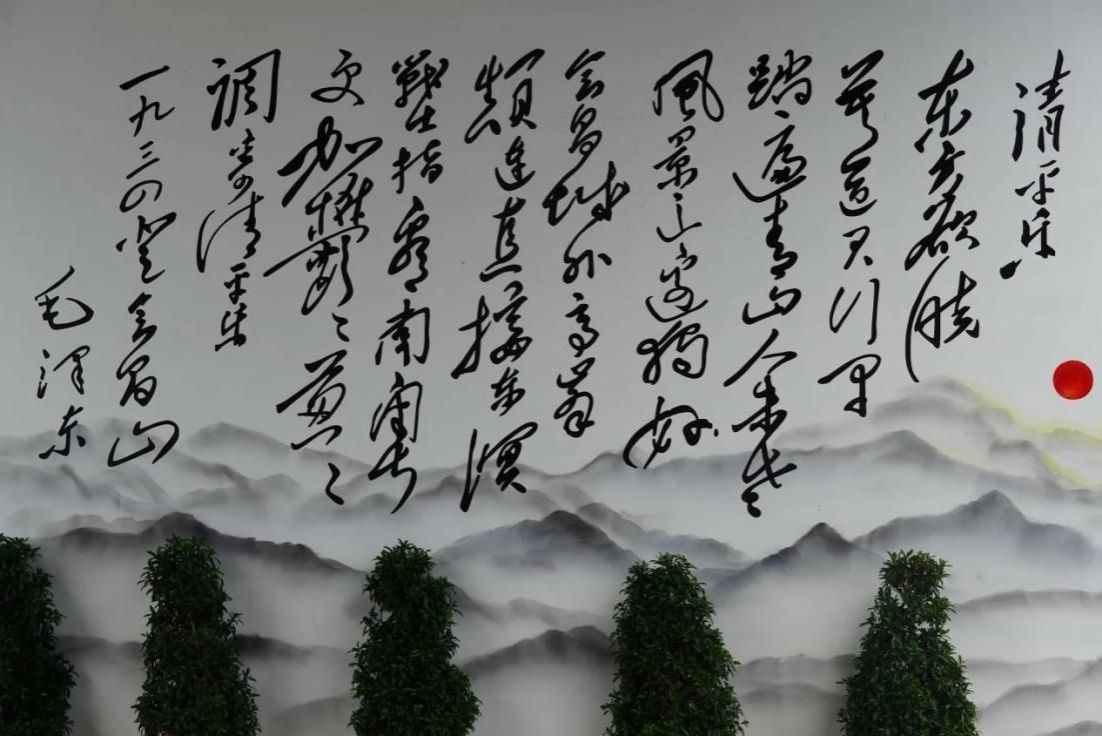 清平乐
东方欲晓
莫道君行早
踏遍青山人未老
風景这邊獨好
会昌城外高峯
顛连直接东溟
戰士指看南粤
更加鬱〻葱〻
調寄清平乐
一九三四登会昌山
毛澤东